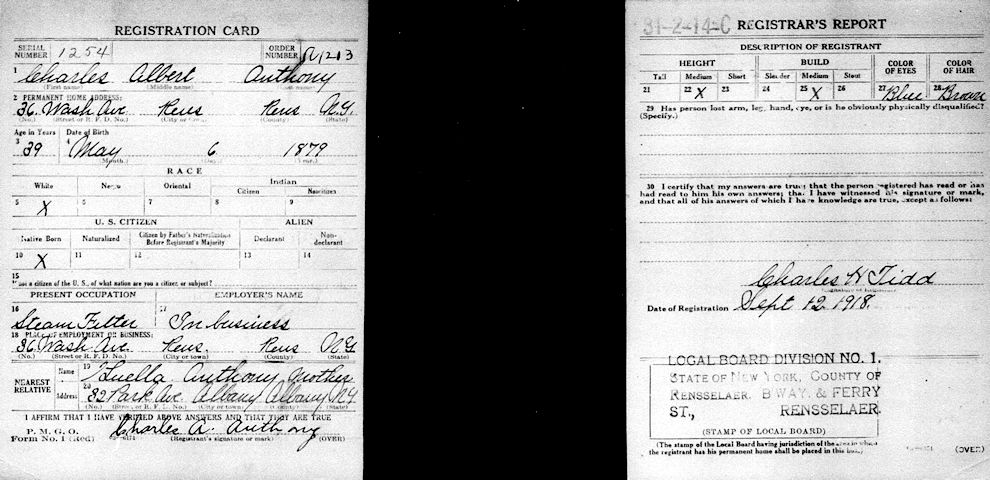 REGISTRATION CARD
SERIAL NUMBER 1254 ORDER NUMBER
1 Charles Albert Anthony
(First name) (Middle name) (Last name)
2 PERMANENT HOME ADDRESS:
36 Wash Ave Rens Rens N.Y.
(No.) (Street or R. F. D. No.) (City or town) (County) (State)
Age in Years Date of Birth
3 39 4 May 6 1879
(Month.) (Day.) (Year.)
RACE
White Negro Oriental Indian
Citizen Noncitizen
5 X 6 7 8 9
U. S. CITIZEN ALIEN
Native Born Naturalized Citizen by Father's Naturalization Before Registrant's Majority Declarant Non-declarant
10 X 11 12 13 14
15
not a citizen of the U. S., of what nation are you a citizen or subject?
PRESENT OCCUPATION EMPLOYER'S NAME
16 17
Steam Fitter In business
18 PLACE OF EMPLOYMENT OR BUSINESS:
36 Wash Ave. Rens. Rens N.Y.
(No.) (Street or R. F. D. No.) (City or town) (County) (State)
NEAREST RELATIVE Name 19 Luella Anthony Mother
Address 20 82 Park Ave Albany Albany N.Y.
(No.) (Street or R. F. D. No.) (City or town) (County) (State)
I AFFIRM THAT I HAVE VERIFIED ABOVE ANSWERS AND THAT THEY ARE TRUE
P. M. G. O.
Form No. 1 (Red) Charles A. Anthony
(Registrant's signature or mark) (OVER)
31-2-14-C REGISTRAR'S REPORT
DESCRIPTION OF REGISTRANT
HEIGHT BUILD COLOR OF EYES COLOR OF HAIR
Tall Medium Short Slender Medium Stout
21 22 X 23 24 25 X 26 27 Blue 28 Brown
29 Has person lost arm, leg, hand, eye, or is he obviously physically disqualified?
(Specify.)
30 I certify that my answers are true; that the person registered has read or has
had read to him his own answers; that I have witnessed his signature or mark,
and that all of his answers of which I have knowledge are true, except as follows:
Charles H Tidd
(Signature of Registrar)
Date of Registration Sept 12 1918
LOCAL BOARD DIVISION NO. 1.
STATE OF NEW YORK, COUNTY OF
RENSSELAER. B'WAY. & FERRY
ST., RENSSELAER.
(STAMP OF LOCAL BOARD)
(The stamp of the Local Board having jurisdiction of the area in which
the registrant has his permanent home shall be placed in this box.)
(OVER)